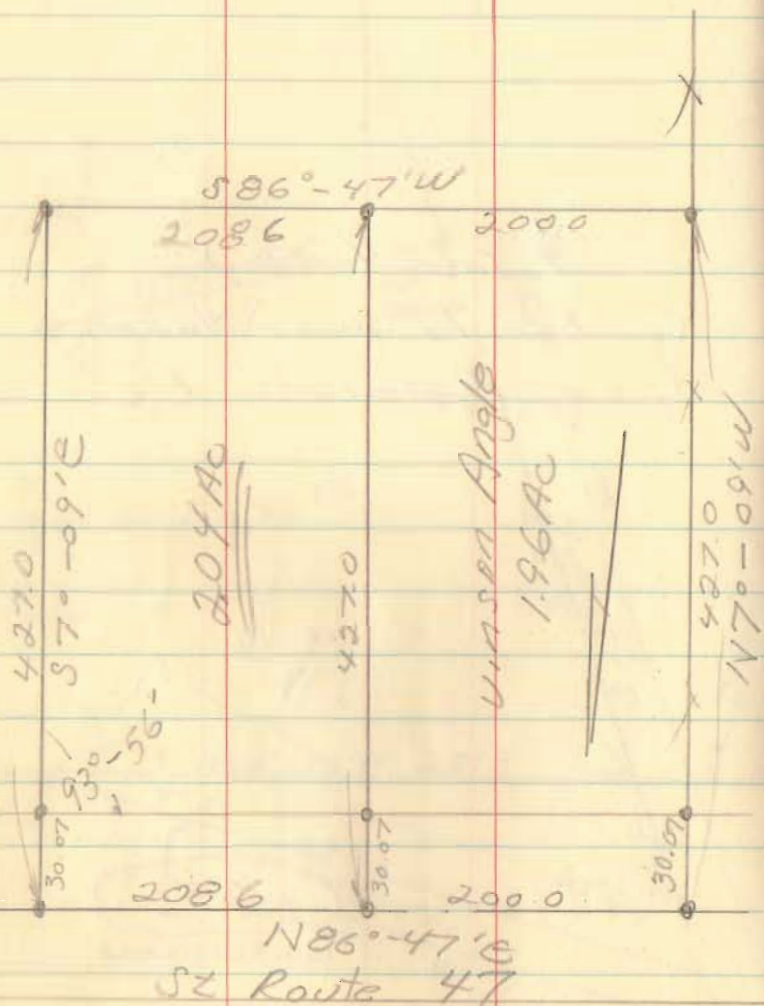 S 86°-47'W
208.6
200.0
427.0
S 7°-09'E
2.04 Ac
427.0
Vinson Angle
1.96 Ac
427.0
N 7°-09'W
93°-56'
30.07
30.07
30.07
208.6
200.0
N 86°-47'E
St Route 47